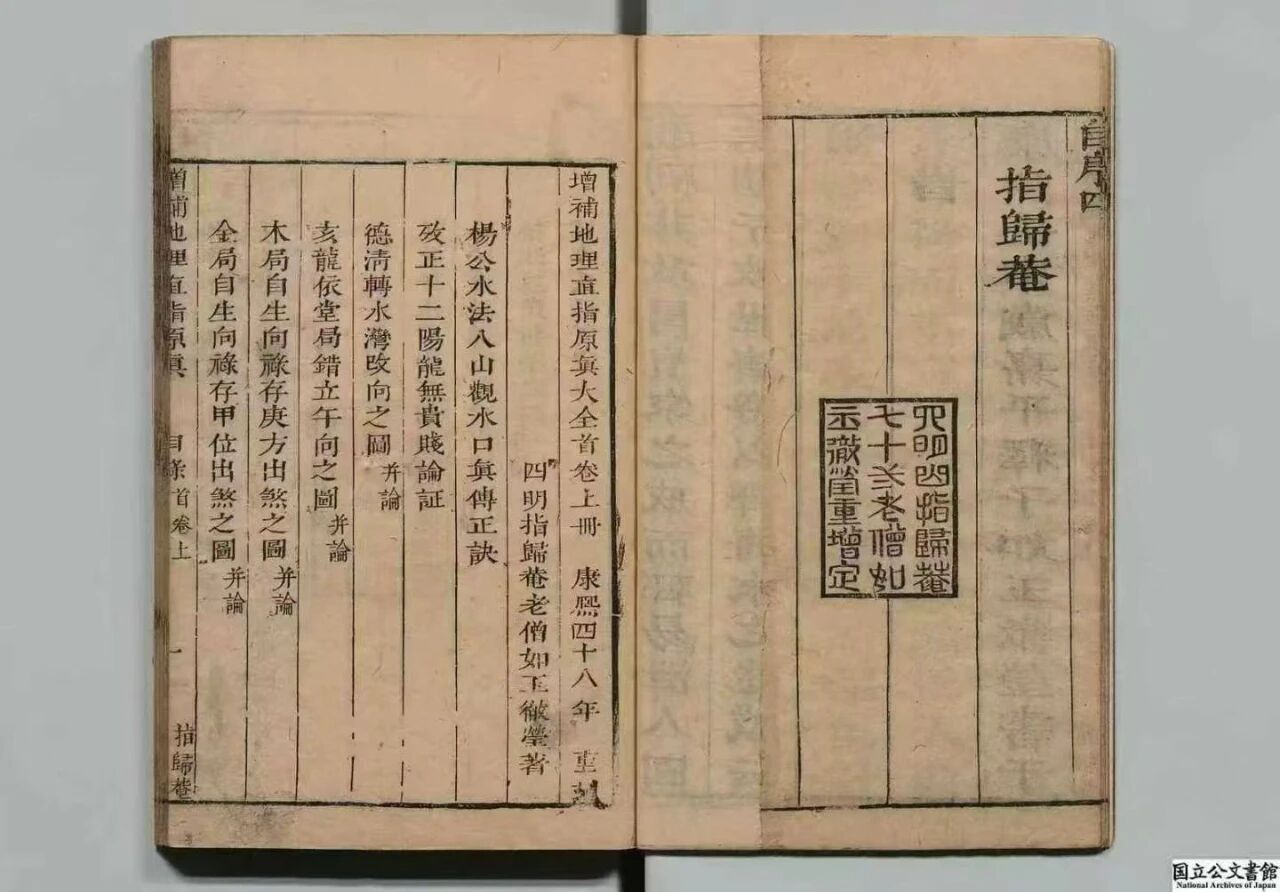 自序四
指歸菴
四明山指歸菴
七十三老僧如
玉徹瑩重增定
增補地理直指原眞大全首卷上冊 康熙四十八年 重
四明指歸菴老僧如玉徹瑩著
楊公水法八山觀水口眞傳正訣
攷正十二陽龍無貴賤論証
德清轉水灣改向之圖 并論
亥龍依堂局錯立午向之圖 并論
木局自生向祿存庚方出煞之圖 并論
金局自生向祿存甲位出煞之圖 并論
增補地理直指原眞 目條首卷上 一 指歸菴
国立公文書館
National Archives of Japan